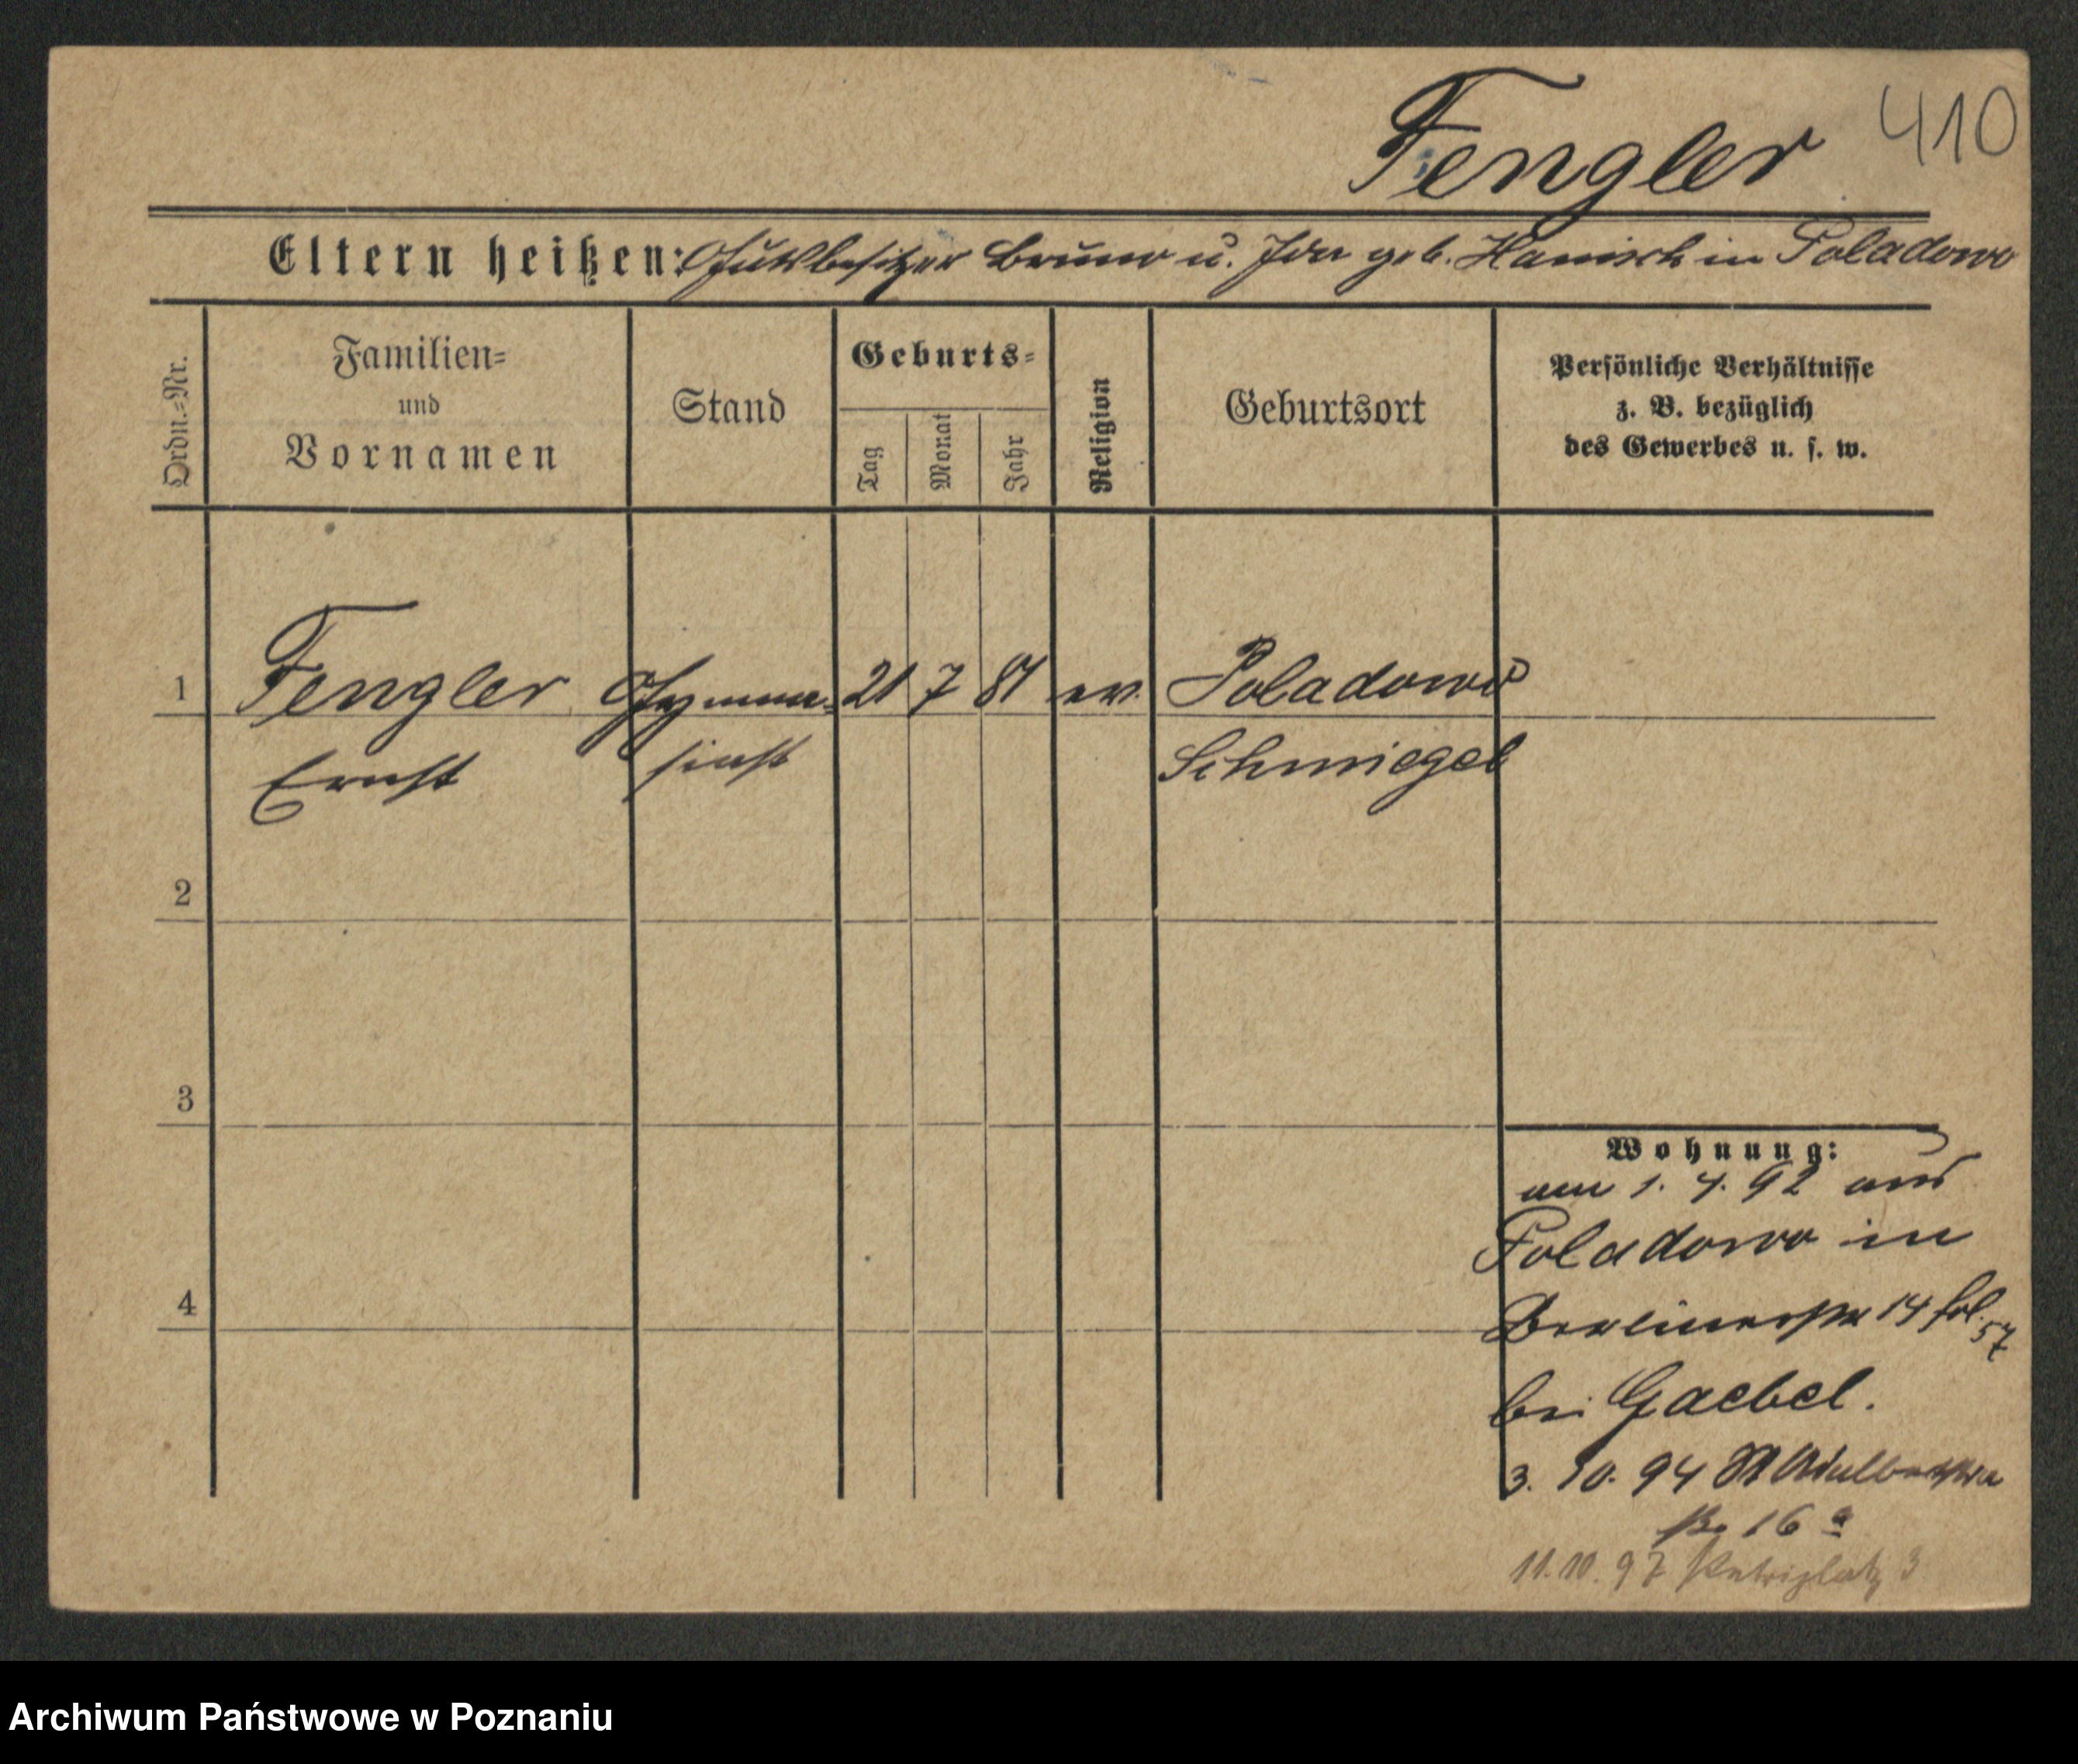 410
Fengler
Eltern heißen: Gutsbesitzer Bruno u. Ida geb. Hanisch in Poladowo
Ordn.=Nr.
Familien=
und
Vornamen
Stand
Geburts=
Tag
Monat
Jahr
Religion
Geburtsort
Persönliche Verhältnisse
z. B. bezüglich
des Gewerbes u. s. w.
1 Fengler Gymna= 21 7 81 ev. Poladowo
Ernst siast Schmiegel
2
3
4
Wohnung:
am 1. 4. 92 aus
Poladowo in
Berlinerstr 14 fol. 57
bei Gaebel.
3. 10. 94
16 a
11.10.97 Petriplatz 3
Archiwum Państwowe w Poznaniu